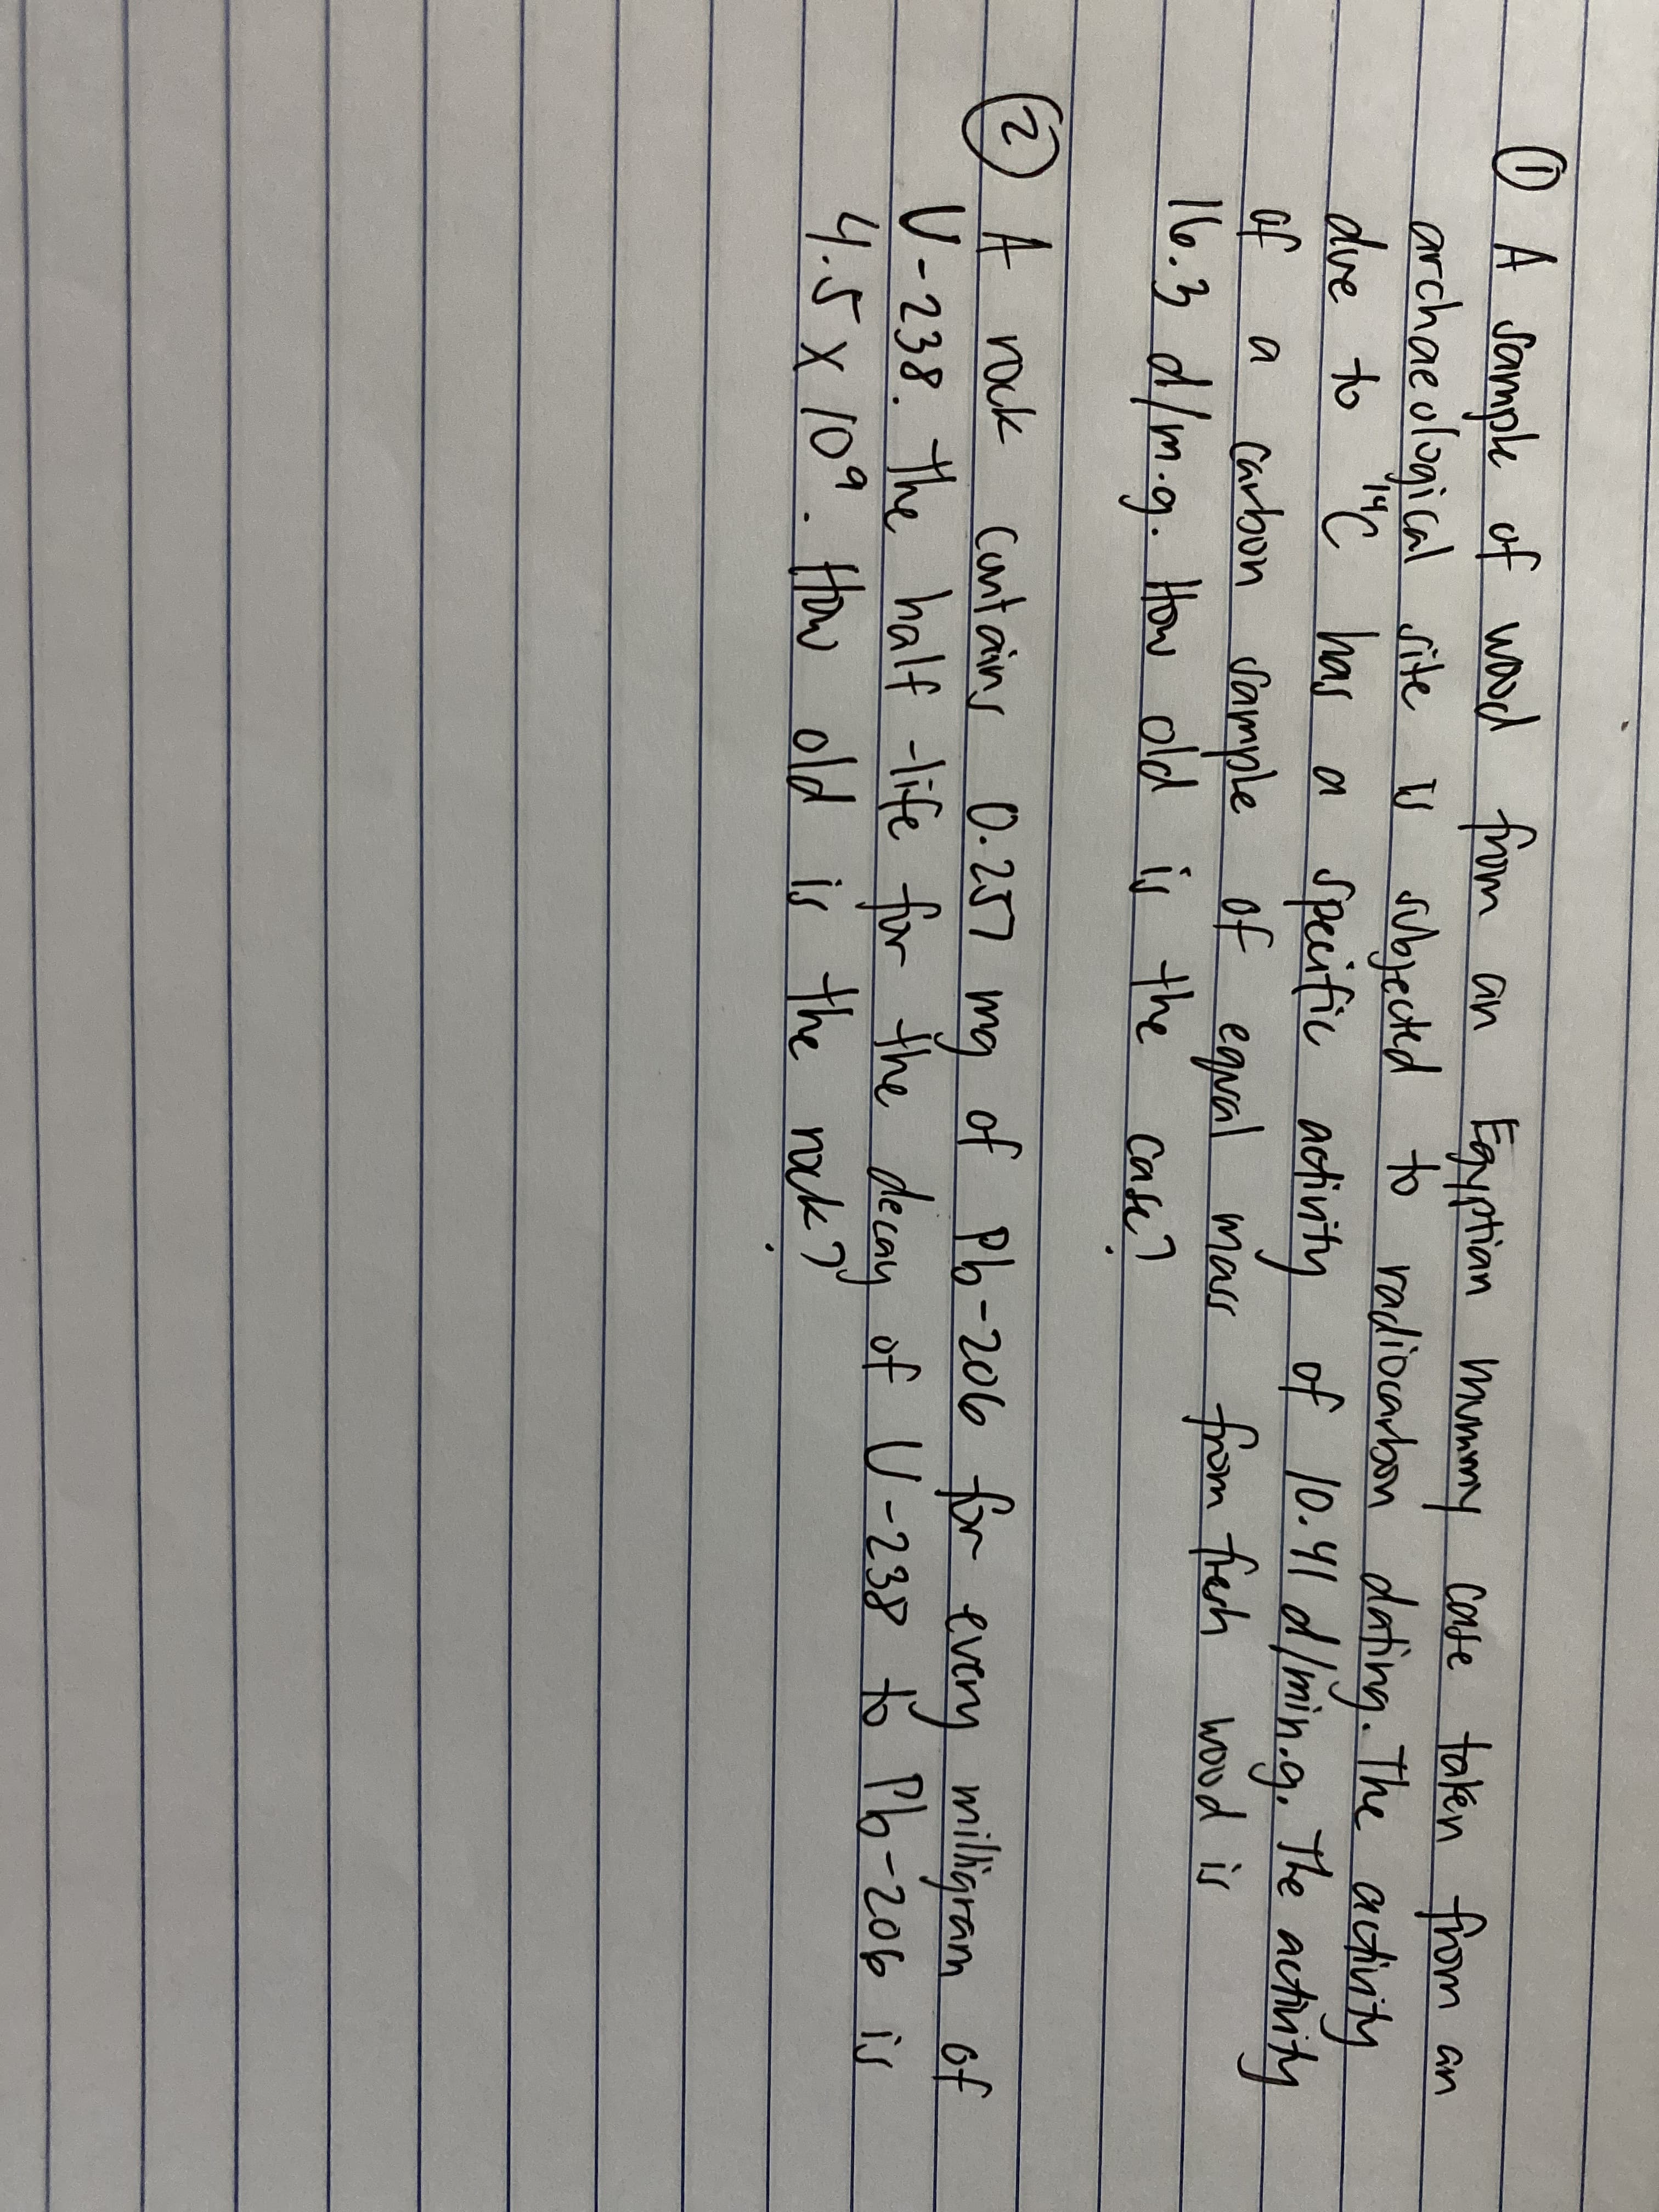 ① A sample of wood from an Egyptian mummy case taken from an
archaeological site is subjected to radiocarbon dating. The activity
due to ¹⁴C has a specific activity of 10.41 d/min.g. The activity
of a carbon sample of equal mass from fresh wood is
16.3 d/m.g. How old is the case?
② A rock contains 0.257 mg of Pb-206 for every milligram of
U-238. The half-life for the decay of U-238 to Pb-206 is
4.5 x 10⁹. How old is the rock?